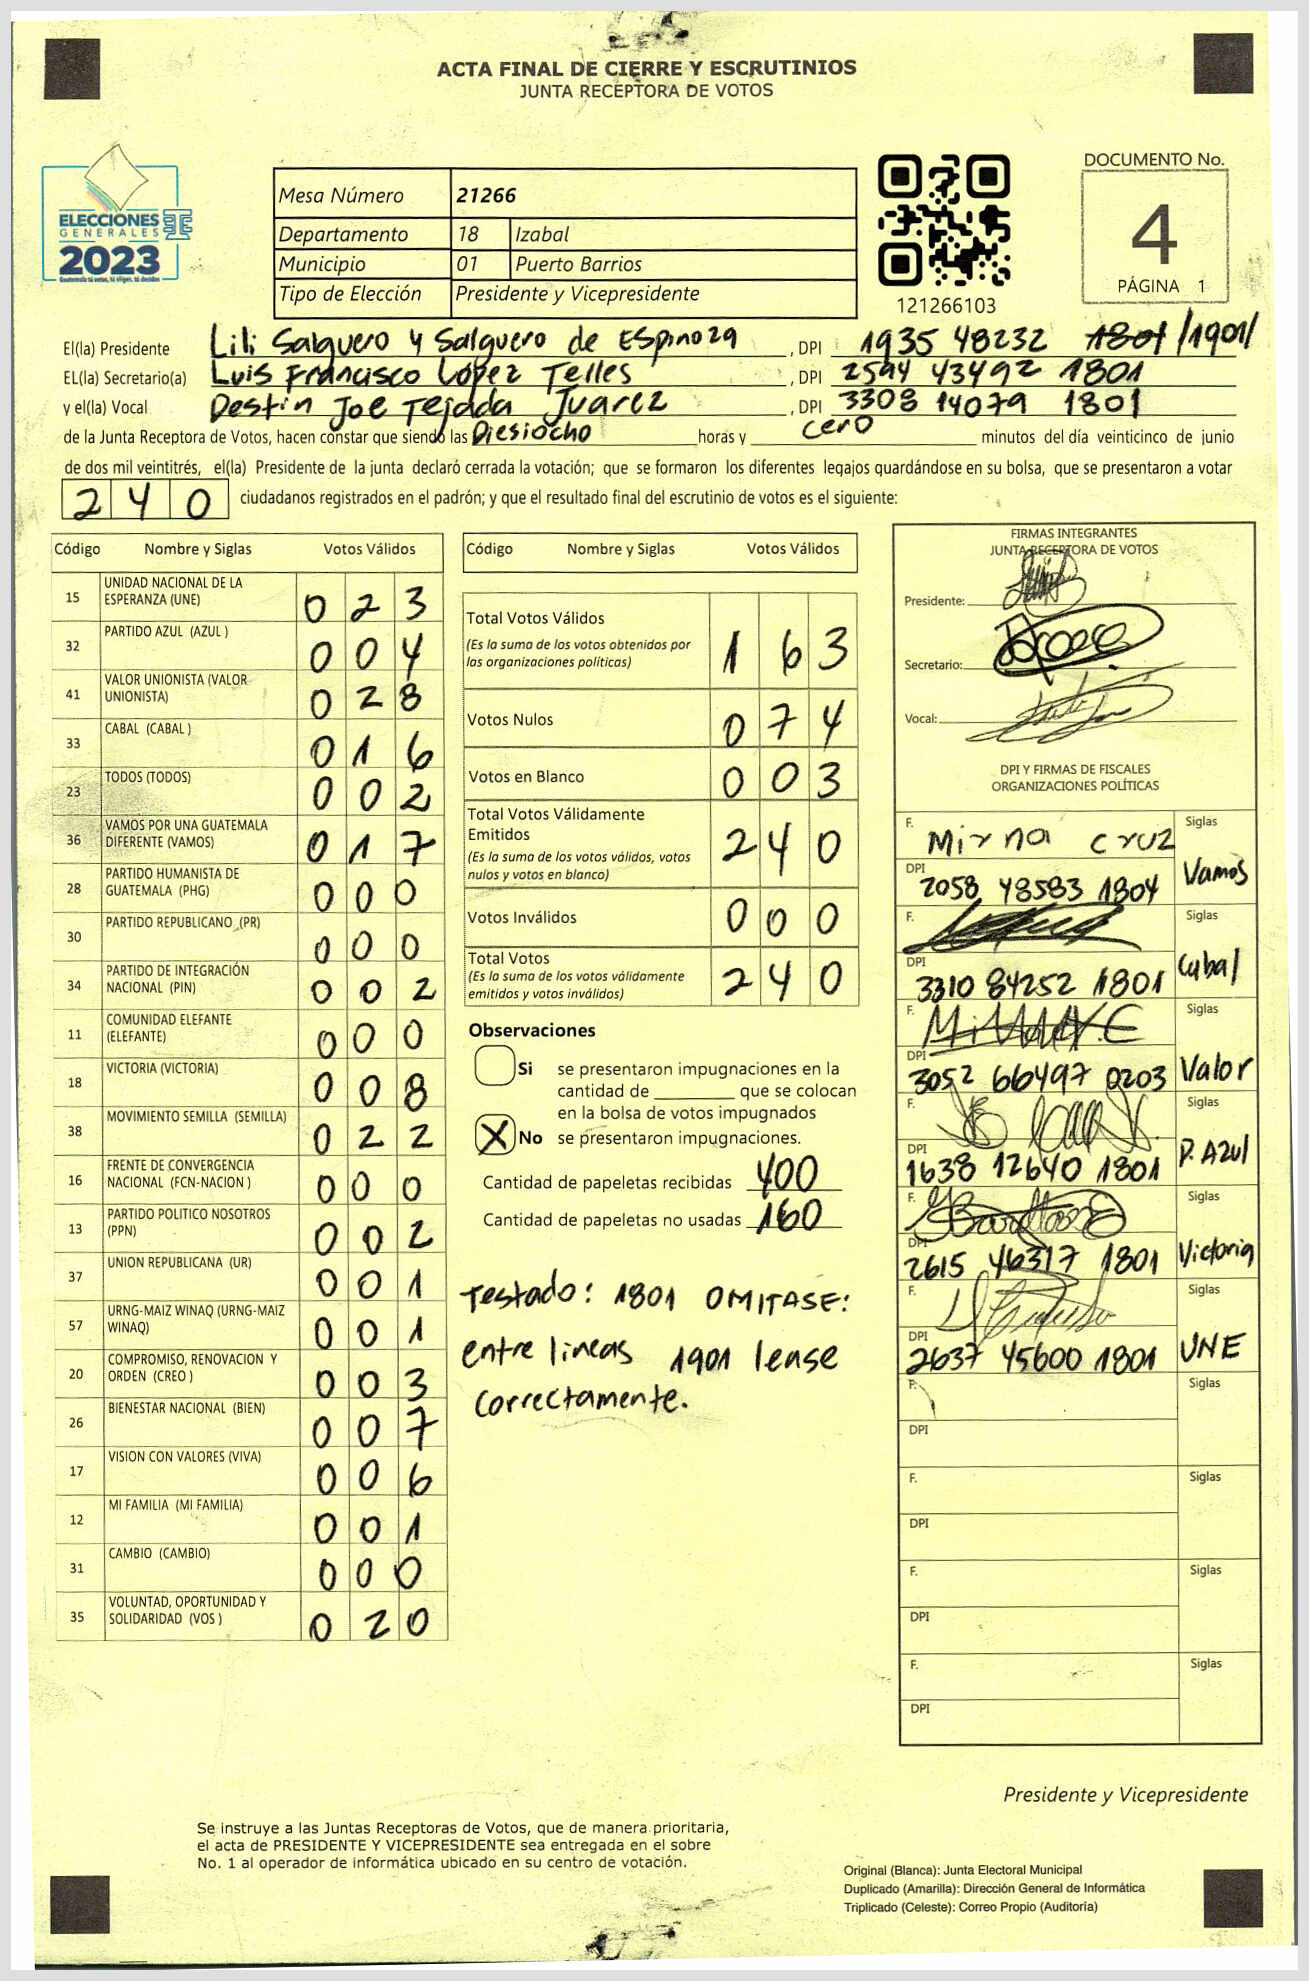 ACTA FINAL DE CIERRE Y ESCRUTINIOS
JUNTA RECEPTORA DE VOTOS
ELECCIONES
GENERALES
2023
Mesa Número 21266
Departamento 18 Izabal
Municipio 01 Puerto Barrios
Tipo de Elección Presidente y Vicepresidente
121266103
DOCUMENTO No.
4
PÁGINA 1
El(la) Presidente Lili Salguero y Salguero de Espinoza , DPI 1935 48232 1801 /1901/
EL(la) Secretario(a) Luis Francisco López Telles , DPI 2594 43492 1801
y el(la) Vocal Destin Joe Tejada Juarez , DPI 3308 14079 1801
de la Junta Receptora de Votos, hacen constar que siendo las Diesiocho horas y cero minutos del día veinticinco de junio
de dos mil veintitrés, el(la) Presidente de la junta declaró cerrada la votación; que se formaron los diferentes legajos quardándose en su bolsa, que se presentaron a votar
240 ciudadanos registrados en el padrón; y que el resultado final del escrutinio de votos es el siguiente:
Código Nombre y Siglas Votos Válidos
15 UNIDAD NACIONAL DE LA
ESPERANZA (UNE) 023
32 PARTIDO AZUL (AZUL ) 004
41 VALOR UNIONISTA (VALOR
UNIONISTA) 028
33 CABAL (CABAL ) 016
23 TODOS (TODOS) 002
36 VAMOS POR UNA GUATEMALA
DIFERENTE (VAMOS) 017
28 PARTIDO HUMANISTA DE
GUATEMALA (PHG) 000
30 PARTIDO REPUBLICANO (PR) 000
34 PARTIDO DE INTEGRACIÓN
NACIONAL (PIN) 002
11 COMUNIDAD ELEFANTE
(ELEFANTE) 000
18 VICTORIA (VICTORIA) 008
38 MOVIMIENTO SEMILLA (SEMILLA) 022
16 FRENTE DE CONVERGENCIA
NACIONAL (FCN-NACION ) 000
13 PARTIDO POLITICO NOSOTROS
(PPN) 002
37 UNION REPUBLICANA (UR) 001
57 URNG-MAIZ WINAQ (URNG-MAIZ
WINAQ) 001
20 COMPROMISO, RENOVACION Y
ORDEN (CREO ) 003
26 BIENESTAR NACIONAL (BIEN) 007
17 VISION CON VALORES (VIVA) 006
12 MI FAMILIA (MI FAMILIA) 001
31 CAMBIO (CAMBIO) 000
35 VOLUNTAD, OPORTUNIDAD Y
SOLIDARIDAD (VOS ) 020
Código Nombre y Siglas Votos Válidos
Total Votos Válidos 163
(Es la suma de los votos obtenidos por
las organizaciones políticas)
Votos Nulos 074
Votos en Blanco 003
Total Votos Válidamente
Emitidos 240
(Es la suma de los votos válidos, votos
nulos y votos en blanco)
Votos Inválidos 000
Total Votos 240
(Es la suma de los votos válidamente
emitidos y votos inválidos)
Observaciones
Si se presentaron impugnaciones en la
cantidad de que se colocan
en la bolsa de votos impugnados
X No se presentaron impugnaciones.
Cantidad de papeletas recibidas 400
Cantidad de papeletas no usadas 160
Testado: 1801 OMITASE:
entre lineas 1901 lease
correctamente.
FIRMAS INTEGRANTES
JUNTA RECEPTORA DE VOTOS
Presidente:
Secretario:
Vocal:
DPI Y FIRMAS DE FISCALES
ORGANIZACIONES POLÍTICAS
F. Mirna Cruz Siglas
DPI 2058 48583 1804 Vamos
F. Siglas
DPI 3310 84252 1801 Cabal
F. Siglas
DPI 3052 66497 0203 Valor
F. Siglas
DPI 1638 12640 1801 P. Azul
F. Siglas
DPI 2615 46317 1801 Victoria
F. Siglas
DPI 2637 45600 1801 UNE
F. Siglas
DPI
F. Siglas
DPI
F. Siglas
DPI
F. Siglas
DPI
Presidente y Vicepresidente
Se instruye a las Juntas Receptoras de Votos, que de manera prioritaria,
el acta de PRESIDENTE Y VICEPRESIDENTE sea entregada en el sobre
No. 1 al operador de informática ubicado en su centro de votación.
Original (Blanca): Junta Electoral Municipal
Duplicado (Amarilla): Dirección General de Informática
Triplicado (Celeste): Correo Propio (Auditoría)